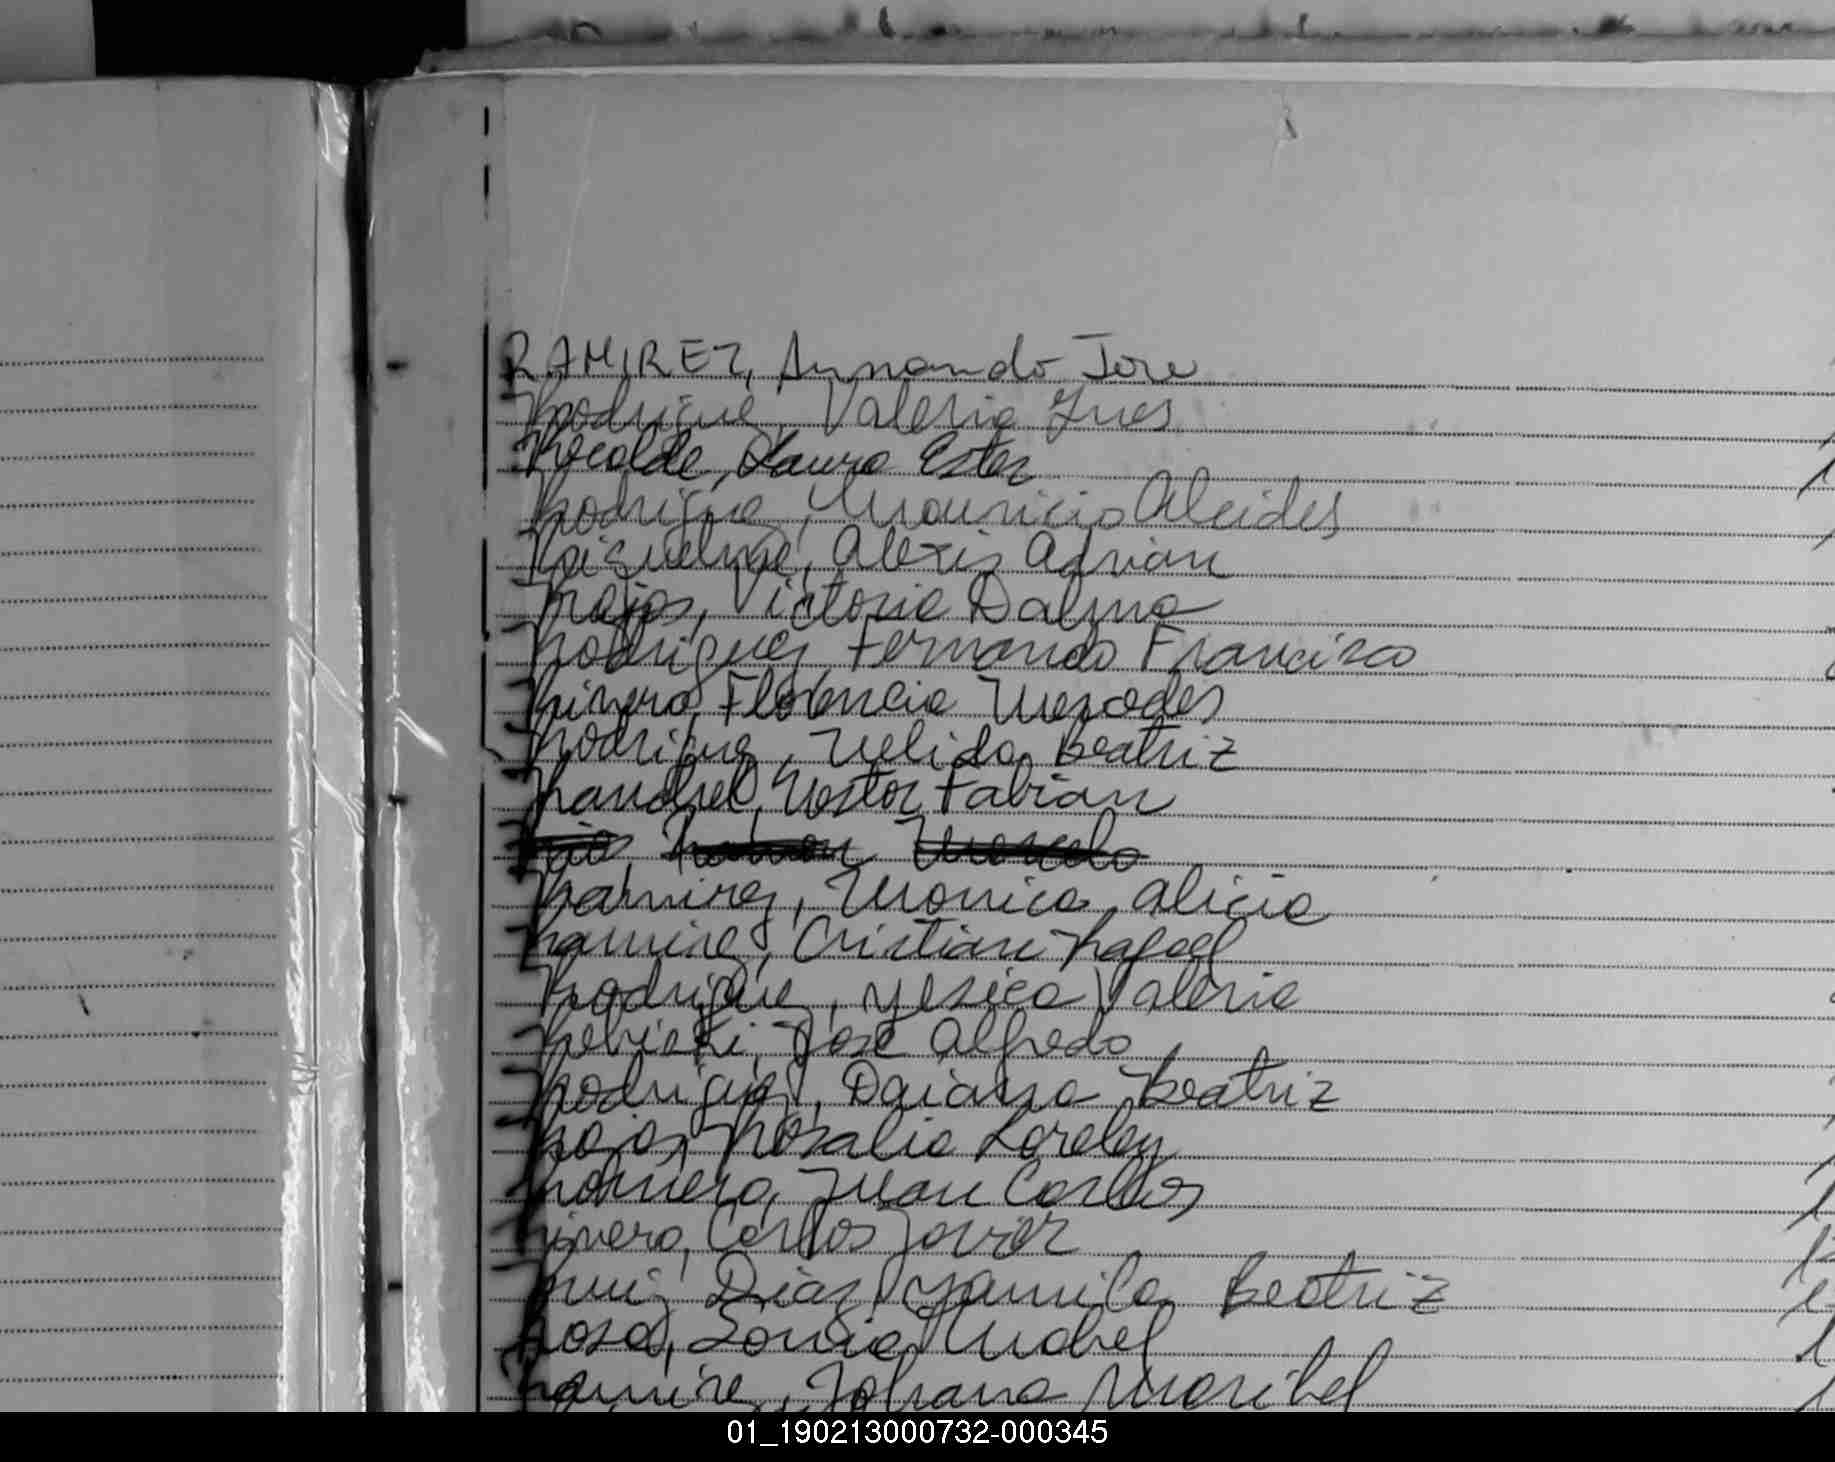 RAMIREZ, Armando Jose
Rodriguez, Valeria Ines
Recalde, Laura Ester
Rodriguez, Mauricio Alcides
Alexis Adrian
Rojas, Victoria Dalma
Rodriguez Fernando Francisco
Rivero, Florencia Mercedes
Rodriguez, Nelida Beatriz
Nestor Fabian
Marcelo
Ramirez, Monica Alicia
Ramirez, Cristian Rafael
Rodriguez, Yesica Valeria
Jose Alfredo
Rodriguez, Daiana Beatriz
Rojas, Rosalia Loreley
Romero, Juan Carlos
Rivero, Carlos Javier
Ruiz Diaz, Yamila Beatriz
Rosa, Sonia Mabel
Ramirez, Johana Maribel
01_190213000732-000345